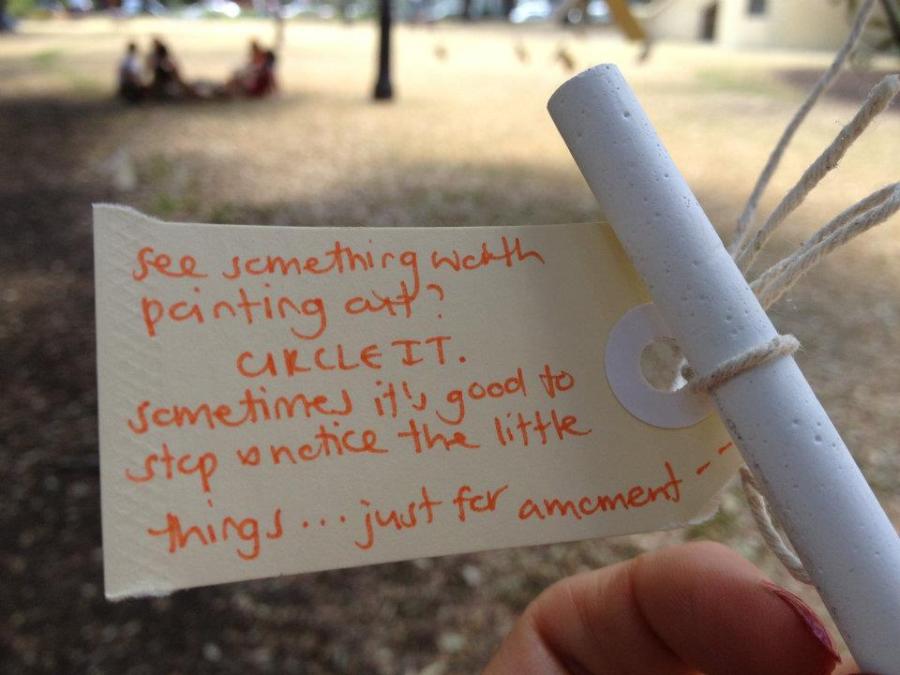 see something worth
pointing out?
CIRCLE IT.
sometimes it's good to
stop & notice the little
things... just for a moment --